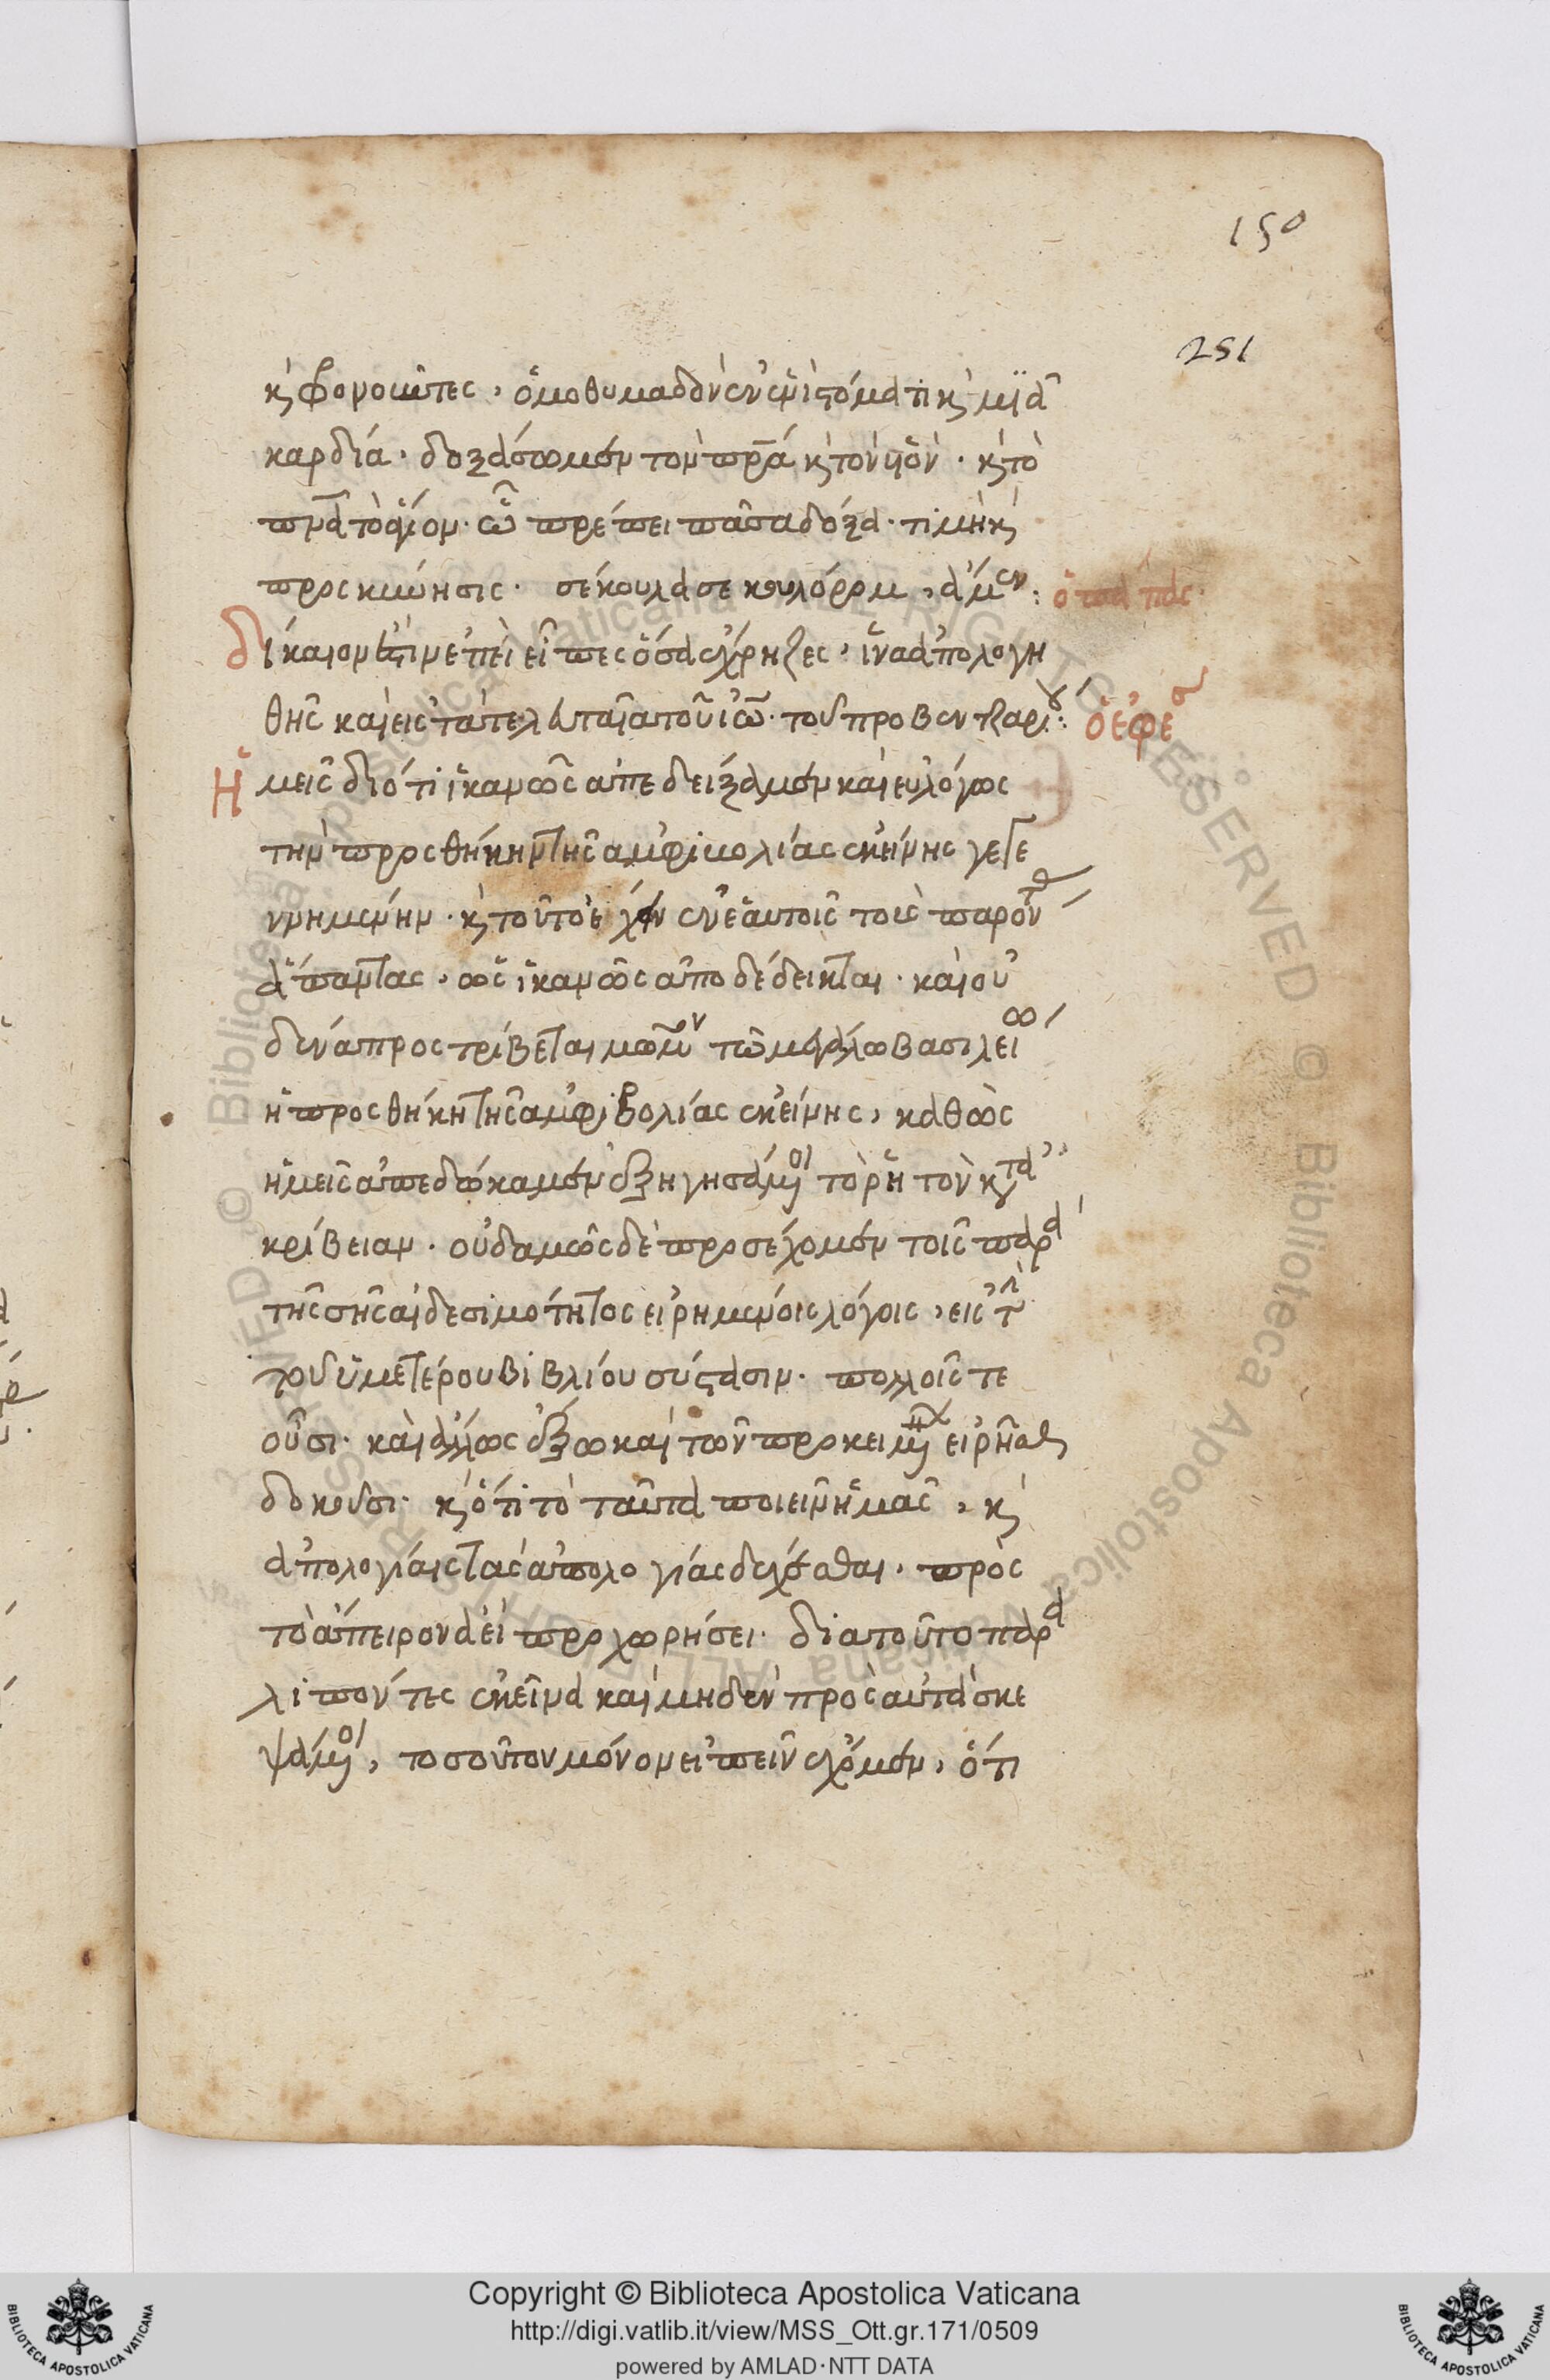 150
251
κ̀ φρονοῦντες, ὁμοθυμαδὸν ἐν ἑνὶ στόματι κ̀ μιᾷ
καρδίᾳ. δοξάσωμεν τὸν πρ̅α κ̀ τὸν υἱὸν. κ̀ τὸ
πν̅α τὸ ἅγιον. ὧ πρέπει πᾶσα δόξα. τιμὴ κ̀
προσκύνησις. σέκουλα σεκουλόρουμ, ἀμήν: ὁ πάπας.
δίκαιόν ἐστιν ἐπεὶ εἶπες ὅσα ἔχρηζες, ἵνα ἀπολογη
θῆς καὶ εἰς τὰ τελευταῖα τοῦ ἰω̅. τοῦ προβεντζαρίου: ὁ ἐφέσου
Ἡμεῖς διότι ἱκανῶς ἀπεδείξαμεν καὶ εὐλόγως
τὴν προσθήκην τῆς ἀμφιβολίας ἐκείνης γεγε
νημένην. κ̀ τοῦτο ἔχειν ἐν ἑαυτοῖς τοὺς παρόντας
ἅπαντας, ὡς ἱκανῶς ἀποδέδεικται. καὶ οὐ
δένα προστρίβεται μῶμον τῶ μεγάλω βασιλείω
ἡ προσθήκη τῆς ἀμφιβολίας ἐκείνης, καθὼς
ἡμεῖς ἀπεδώκαμεν ἐξηγησάμενοι τὸ ῥητὸν κατὰ ἀ
κρίβειαν. οὐδαμῶς δὲ προσέχομεν τοῖς παρὰ
τῆς σῆς αἰδεσιμότητος εἰρημένοις λόγοις, εἰς τὴν
τοῦ ὑμετέρου βιβλίου σύστασιν. πολλοῖς τε
οὖσι. καὶ ἄλλως ἔξω καὶ τῶν προκειμένων εἰρῆσθαι
δοκοῦσι. κ̀ ὅτι τὸ ταῦτα ποιεῖν ἡμᾶς, κ̀
ἀπολογίαις τὰς ἀπολογίας δέχεσθαι. πρὸς
τὸ ἄπειρον ἀεὶ προχωρήσει. διὰ τοῦτο παρα
λιπόντες ἐκεῖνα καὶ μηδὲν πρὸς αὐτὰ σκε
ψάμενοι, τοσοῦτον μόνον εἰπεῖν ἔχομεν, ὅτι
Copyright © Biblioteca Apostolica Vaticana
http://digi.vatlib.it/view/MSS_Ott.gr.171/0509
powered by AMLAD·NTT DATA